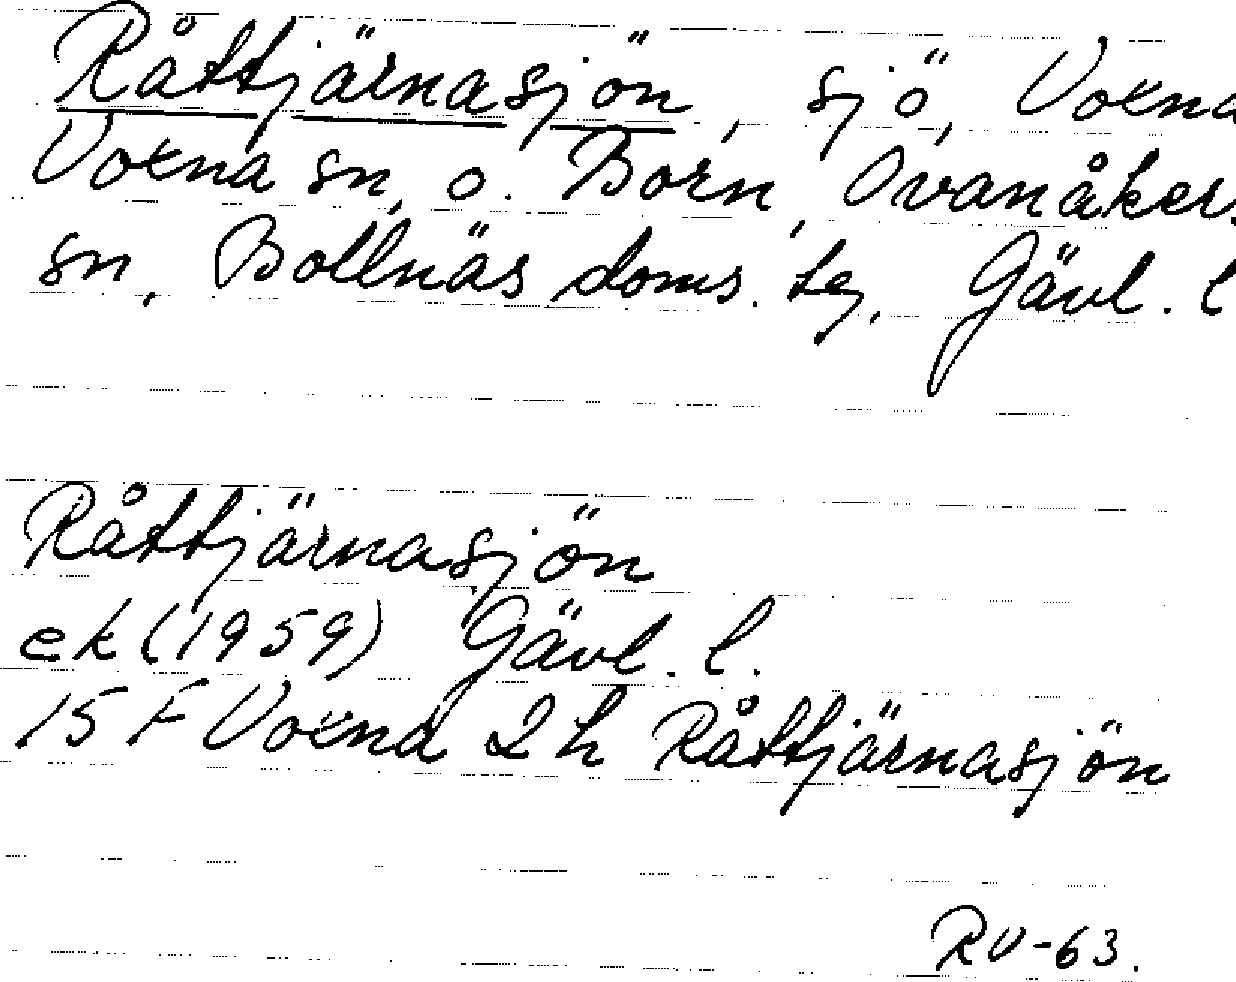 Råttjärnasjön, sjö, Voxna
Voxna sn, o. Born, Ovanåker.
sn, Bollnäs doms. tg, Gävl. l
Råttjärnasjön
ek (1959) Gävl. l.
15 F Voxna 2 h Råttjärnasjön
RV-63.